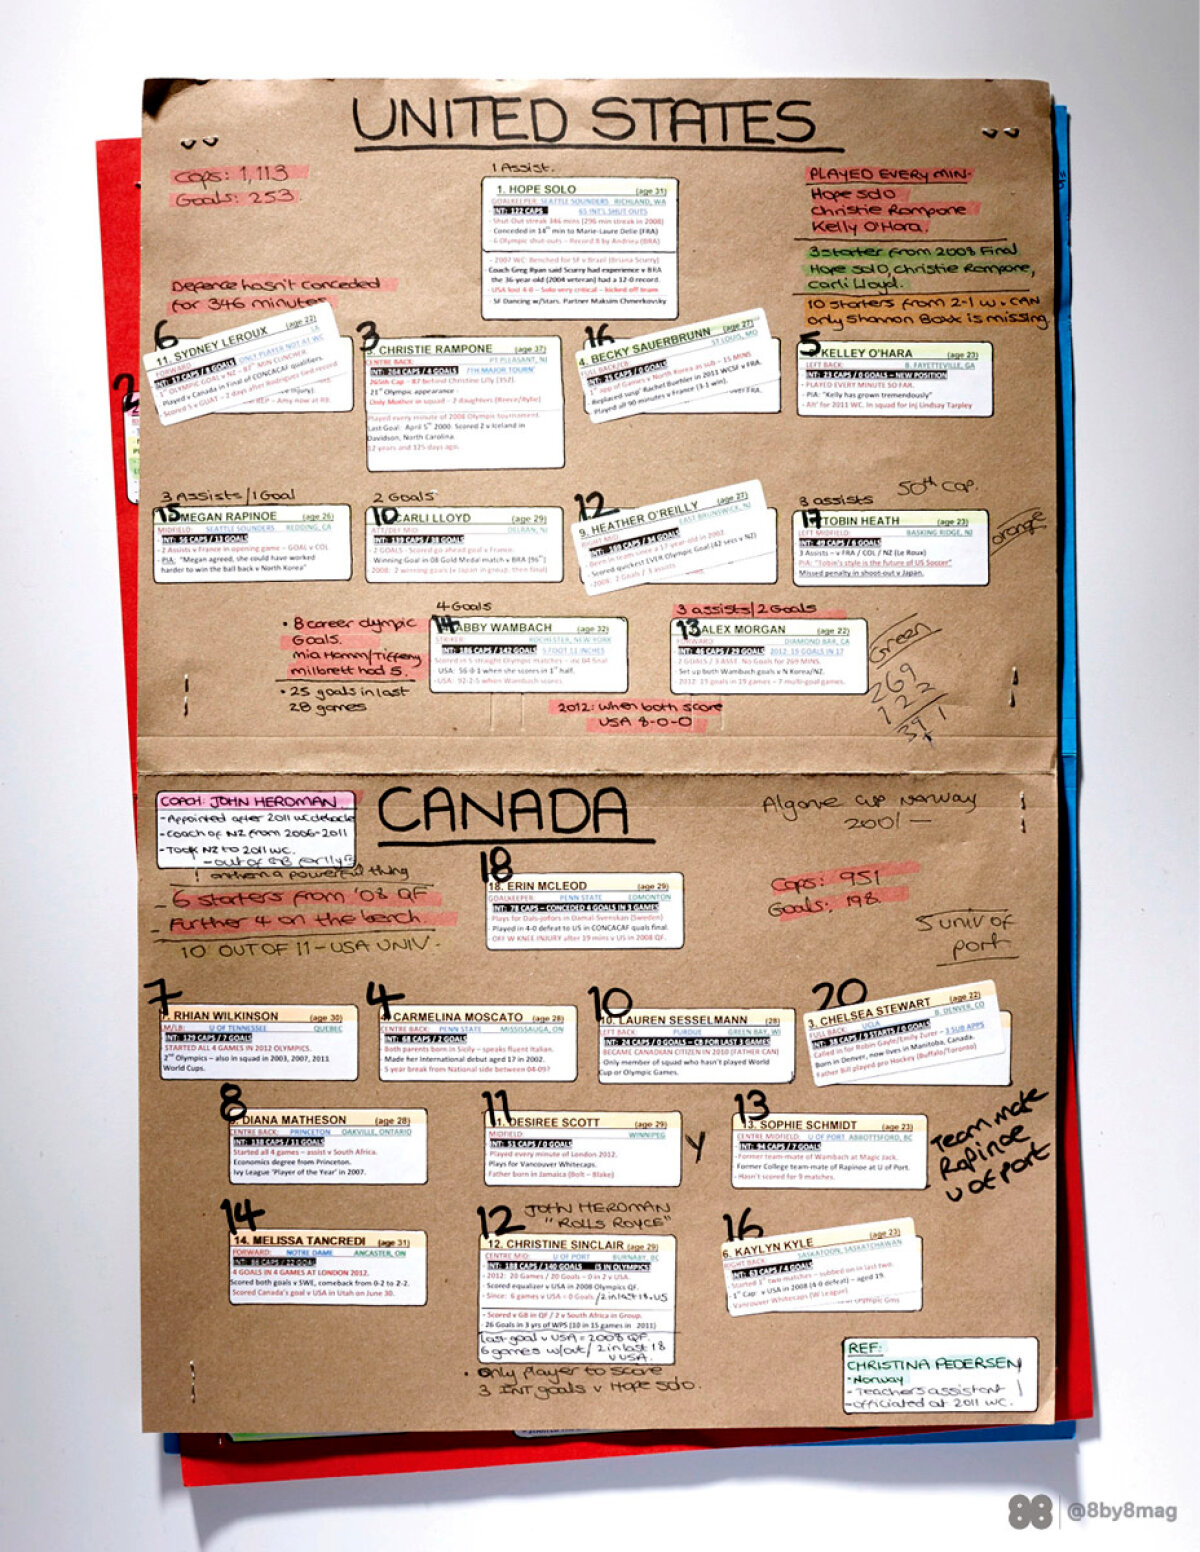 UNITED STATES
Caps: 1,113
Goals: 253
1 Assist.
1. HOPE SOLO (age 31)
GOALKEEPER SEATTLE SOUNDERS RICHLAND, WA
INT: 122 CAPS 65 INT'L SHUT OUTS
- Shut-Out streak 346 mins (296 min streak in 2008)
- Conceded in 14th min to Marie-Laure Delie (FRA)
- 6 Olympic shut-outs - Record 8 by Andrieu (BRA)
- 2007 WC: Benched for SF v Brazil (Briana Scurry)
Coach Greg Ryan said Scurry had experience v BRA
the 36-year old (2004 veteran) had a 12-0 record.
- USA lost 4-0 - Solo very critical - kicked off team
- SF Dancing w/stars. Partner Maksim Chmerkovsky
PLAYED EVERY MIN-
Hope solo
Christie Rampone
Kelly O'Hara.
3 starter from 2008 Final
Hope solo, christie Rampone,
carli lloyd.
10 starters from 2-1 w v CAN
only Shannon Boxx is missing
Defence hasn't conceded
for 346 minutes
6
11. SYDNEY LEROUX (age 22)
FORWARD ONLY PLAYER NOT AT WC
INT: 17 CAPS / 8 GOALS
1st OLYMPIC GOAL v NZ - 87th MIN CLINCHER.
Played v Canada in Final of CONCACAF qualifiers.
Scored 5 v GUAT - 2 days after Rodriguez tied record
3
3. CHRISTIE RAMPONE (age 37)
CENTRE BACK: PT PLEASANT, NJ
INT: 264 CAPS / 4 GOALS 7TH MAJOR TOURN'
265th Cap - 87 behind Christine Lilly (352).
21st Olympic appearance -
Only Mother in squad - 2 daughters (Reece/Rylie)
Played every minute of 2008 Olympic tournament.
Last Goal: April 5th 2000. Scored 2 v Iceland in
Davidson, North Carolina.
12 years and 125 days ago.
16
4. BECKY SAUERBRUNN (age 27)
FULL BACK/CB ST LOUIS, MO
INT: 25 CAPS / 0 GOALS
1st app of Games v North Korea as sub - 15 MINS.
Replaced 'susp' Rachel Buehler in 2011 WCSF v FRA.
Played all 90 minutes v France (3-1 win).
5
KELLEY O'HARA (age 23)
LEFT BACK: B. FAYETTEVILLE, GA
INT: 23 CAPS / 0 GOALS - NEW POSITION
- PLAYED EVERY MINUTE SO FAR.
- PIA: "Kelly has grown tremendously"
- Alt' for 2011 WC. In squad for Inj Lindsay Tarpley
2
3 Assists/1 Goal
15
MEGAN RAPINOE (age 26)
MIDFIELD: SEATTLE SOUNDERS REDDING, CA
INT: 56 CAPS / 13 GOALS
- 2 Assists v France in opening game - GOAL v COL
- PIA: "Megan agreed, she could have worked
harder to win the ball back v North Korea"
2 Goals
10
CARLI LLOYD (age 29)
ATT/DEF MID DELRAN, NJ
INT: 139 CAPS / 38 GOALS
- 2 GOALS - Scored go ahead goal v France.
Winning Goal in 08 Gold Medal match v BRA (96th)
2008: 2 winning goals (v Japan in group, then final)
12
9. HEATHER O'REILLY (age 27)
RIGHT MID EAST BRUNSWICK, NJ
INT: 169 CAPS / 34 GOALS
- Been in team since a 17 year-old in 2002.
- Scored quickest EVER Olympic Goal (42 secs v NZ)
- 2008: 2 Goals / 3 assists
3 assists
50th cap.
17
TOBIN HEATH (age 23)
LEFT MIDFIELD: BASKING RIDGE, NJ
INT: 49 CAPS / 6 GOALS
3 Assists - v FRA / COL / NZ (Le Roux)
PIA: "Tobin's style is the future of US Soccer"
Missed penalty in shoot-out v Japan.
orange
• 8 career olympic
Goals.
mia Hamm/Tiffeny
milbrett had 5.
• 25 goals in last
28 games
4 Goals
14
ABBY WAMBACH (age 32)
STRIKER: ROCHESTER, NEW YORK
INT: 186 CAPS / 142 GOALS 5 FOOT 11 INCHES
Scored in 5 straight Olympic matches - inc 04 final
- USA: 56-0-1 when she scores in 1st half.
- USA: 92-2-5 when Wambach scores.
3 assists/2 Goals
13
ALEX MORGAN (age 22)
FORWARD: DIAMOND BAR, CA
INT: 46 CAPS / 29 GOALS 2012: 19 GOALS IN 17
- 2 GOALS / 3 ASST. No Goals for 269 MINS.
Set up both Wambach goals v N Korea/NZ.
- 2012: 19 goals in 19 games - 7 multi-goal games.
2012: when both score
USA 8-0-0
Green
269
122
391
COACH: JOHN HERDMAN
- Appointed after 2011 WC debacle
- coach of NZ from 2006-2011
- Took NZ to 2011 WC.
anthem a powerful thing
- 6 starters from '08 QF
- Further 4 on the bench
10 OUT OF 11 - USA UNIV.
CANADA
Algarve Cup Norway
2001 —
Caps: 951
Goals: 198
5 univ of
port
18
18. ERIN MCLEOD (age 29)
GOALKEEPER: PENN STATE EDMONTON
INT: 78 CAPS - CONCEDED 4 GOALS IN 3 GAMES
Plays for Dals-jofors in Damal-Svenskan (Sweden)
Played in 4-0 defeat to US in CONCACAF quals final.
OFF W KNEE INJURY after 19 mins v US in 2008 QF.
7
7. RHIAN WILKINSON (age 30)
M/LB: U OF TENNESSEE QUEBEC
INT: 129 CAPS / 7 GOALS
- STARTED ALL 4 GAMES IN 2012 OLYMPICS.
2nd Olympics - also in squad in 2003, 2007, 2011
World Cups.
4
4. CARMELINA MOSCATO (age 28)
CENTRE BACK: PENN STATE MISSISSAUGA, ON
INT: 68 CAPS / 2 GOALS
Both parents born in Sicily - speaks fluent Italian.
Made her International debut aged 17 in 2002.
5 year break from National side between 04-09?
10
10. LAUREN SESSELMANN (28)
LEFT BACK: PURDUE GREEN BAY, WI
INT: 24 CAPS / 0 GOALS - CB FOR LAST 3 GAMES
BECAME CANADIAN CITIZEN IN 2010 (FATHER CAN)
- Only member of squad who hasn't played World
Cup or Olympic Games.
20
3. CHELSEA STEWART (age 22)
FULL BACK: UCLA B. DENVER, CO
INT: 38 CAPS / 9 STARTS / 0 GOALS - 3 SUB APPS
Called in for Robin Gayle/Emily Zurer
Born in Denver, now lives in Manitoba, Canada.
Father Bill played pro Hockey (Buffalo/Toronto)
8
8. DIANA MATHESON (age 28)
CENTRE BACK: PRINCETON OAKVILLE, ONTARIO
INT: 138 CAPS / 11 GOALS
Started all 4 games - assist v South Africa.
Economics degree from Princeton.
Ivy League 'Player of the Year' in 2007.
11
11. DESIREE SCOTT (age 29)
MIDFIELD WINNIPEG
INT: 51 CAPS / 0 GOALS
Played every minute of London 2012.
Plays for Vancouver Whitecaps.
Father born in Jamaica (Bolt - Blake)
Y
13
13. SOPHIE SCHMIDT (age 23)
CENTRE MIDFIELD: U OF PORT ABBOTTSFORD, BC
INT: 94 CAPS / 7 GOALS
- Former team-mate of Wambach at Magic Jack.
Former College team-mate of Rapinoe at U of Port.
- Hasn't scored for 9 matches.
Team mate
Rapinoe
U of port
14
14. MELISSA TANCREDI (age 31)
FORWARD: NOTRE DAME ANCASTER, ON
4 GOALS IN 4 GAMES AT LONDON 2012.
Scored both goals v SWE, comeback from 0-2 to 2-2.
Scored Canada's goal v USA in Utah on June 30.
JOHN HERDMAN
"ROLLS ROYCE"
12
12. CHRISTINE SINCLAIR (age 29)
CENTRE MID: U OF PORT BURNABY, BC
INT: 188 CAPS / 140 GOALS (5 IN OLYMPICS)
- 2012: 20 Games / 20 Goals - 0 in 2 v USA.
Scored equalizer v USA in 2008 Olympics QF.
- Since: 6 games v USA = 0 Goals / 2 in last 18 v US
- Scored v GB in QF / 2 v South Africa in Group.
- 26 Goals in 3 yrs of WPS (10 in 15 games in 2011)
last goal v USA = 2008 QF.
6 games w/out / 2 in last 18
v USA.
• only player to score
3 INT goals v Hope Solo.
16
6. KAYLYN KYLE (age 23)
RIGHT BACK: SASKATOON, SASKATCHEWAN
INT: 63 CAPS / 4 GOALS
- Started 1st two matches - subbed on in last two.
- 1st Cap: v USA in 2008 (6-0 defeat) - aged 19.
Vancouver Whitecaps (W League).
REF:
CHRISTINA PEDERSEN
- Norway
- Teachers assistant
- officiated at 2011 WC.
88 @8by8mag